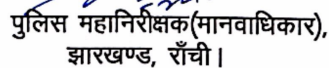 पुलिस महानिरीक्षक(मानवाधिकार),
झारखण्ड, राँची।